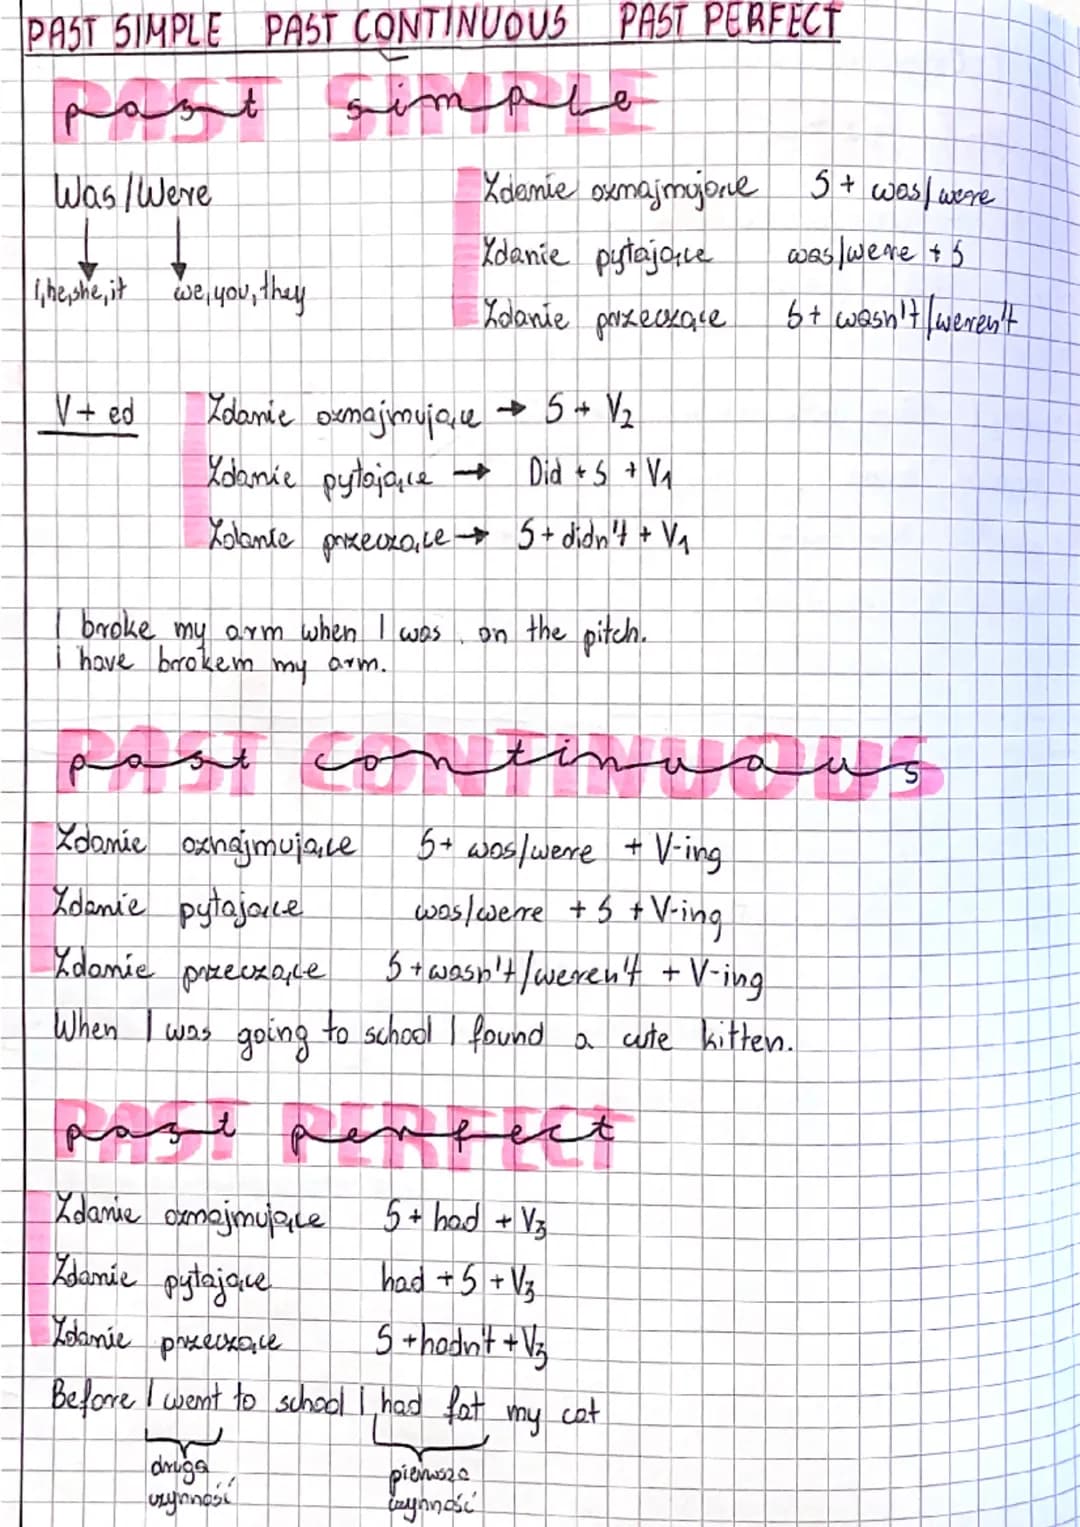 PAST SIMPLE PAST CONTINUOUS PAST PERFECT
PAST SIMPLE
past simple
Was/Were
I, he, she, it we, you, they
Zdanie oznajmujące S + was/were
Zdanie pytające was/were + S
Zdanie przeczące S + wasn't/weren't
V + ed
Zdanie oznajmujące → S + V2
Zdanie pytające → Did + S + V1
Zdanie przeczące → S + didn't + V1
I broke my arm when I was on the pitch.
I have broken my arm.
PAST CONTINUOUS
past continuous
Zdanie oznajmujące S + was/were + V-ing
Zdanie pytające was/were + S + V-ing
Zdanie przeczące S + wasn't/weren't + V-ing
When I was going to school I found a cute kitten.
PAST PERFECT
past perfect
Zdanie oznajmujące S + had + V3
Zdanie pytające had + S + V3
Zdanie przeczące S + hadn't + V3
Before I went to school I had fat my cat
druga czynność
pierwsza czynność